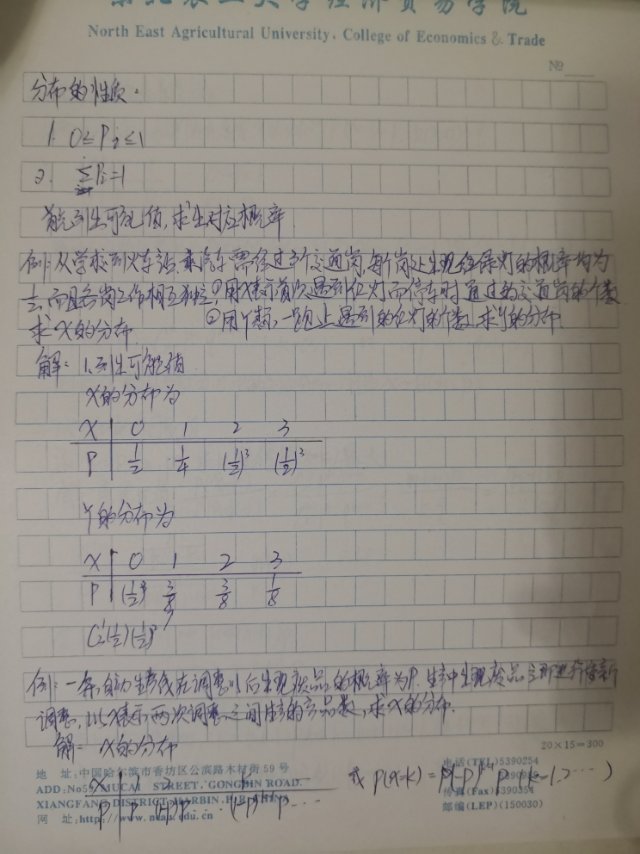 东北农业大学经济贸易学院
North East Agricultural University. College of Economics & Trade
№
分布的性质:
1. 0≤Pi≤1
2. ΣPi=1
首先列出可能值,求出对应概率
例:从学校到火车站,乘汽车需经过3个交通岗,每个岗处出现红绿灯的概率均为
½,而且各岗工作相互独立,①用X表示首次遇到红灯而停车时通过的交通岗的个数
求X的分布 ②用Y表示,一路上遇到的红灯的个数,求Y的分布.
解: 1.列出可能值
X的分布为
X 0 1 2 3
P 1/2 1/4 (1/2)³ (1/2)³
Y的分布为
X 0 1 2 3
P (1/2)³ 3/8 3/8 1/8
例:一条自动生产线在调整以后出现废品的概率为P,生产中出现废品立即进行重新
调整,以X表示两次调整之间生产的产品数,求X的分布.
解: X的分布
20×15=300
地 址:中国哈尔滨市香坊区公滨路木材街59号
电话(TEL)5390254
或 P(X=k) = (1-P)^(k-1) P (k=1,2…)
ADD:No59 MUCAI STREET, GONGBIN ROAD.
传真(Fax)5390354
XIANGFANG DISTRICT, HARBIN. P.R.CHINA
邮编(LEP)(150030)
网 址:http://www.neau.edu.cn